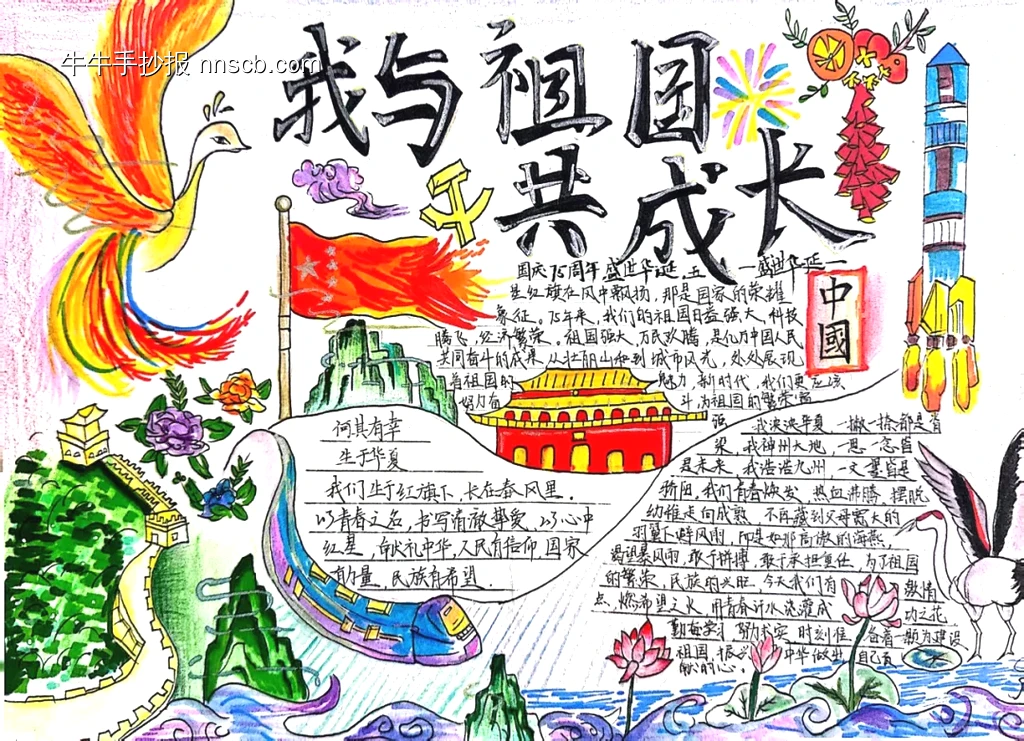 牛牛手抄报 nnscb.com
我与祖国
共成长
国庆75周年 盛世华诞。五
一盛世华诞一
星红旗在风中飘扬，那是国家的荣耀
象征。75年来，我们的祖国日益强大，科技
腾飞，经济繁荣。祖国强大，万民欢腾，是亿万中国人民
共同奋斗的成果。从壮丽山河到城市风光，处处展现
着祖国的
魅力 新时代，我们更应该
努力奋
斗，为祖国的繁荣富
中國
何其有幸
生于华夏
我们生于红旗下，长在春风里。
以青春之名，书写清澈挚爱，以心中
红星，献礼中华，人民有信仰 国家
有力量，民族有希望。
强
我泱泱华夏，一撇一捺都是脊
梁，我神州大地，一思一念皆
是未来，我浩浩九州，一文一墨皆是
骄阳，我们青春焕发，热血沸腾，摆脱
幼稚走向成熟，不再藏到父母宽大的
羽翼下避风雨，而是如那高傲的海燕，
暴风雨，敢于拼搏，敢于承担重任，为了祖国
的繁荣，民族的兴旺，今天我们有 激情
点燃希望之火，用青春汗水浇灌成 功之花
勤奋学习 努力求实，时刻准 备着 为建设
祖国，振兴 中华做出 自己贡
献的心。